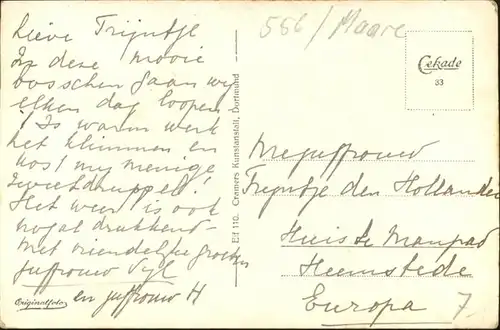 566/Maare
Lieve Trijntje
In deze mooie
bosschen gaan wij
elken dag loopen
't Is warm werk
het klimmen en
kost my menige
zweetdruppel!
Het weer is ook
nogal drukkend
Met vriendelijke groeten
juffrouw Vyl
en juffrouw H
Originalfoto
EH 110. Cremers Kunstanstalt, Dortmund
Cekade
33
Mejuffrouw
Trijntje den Hollander
Huis te Manpad
Heemstede
Europa 7